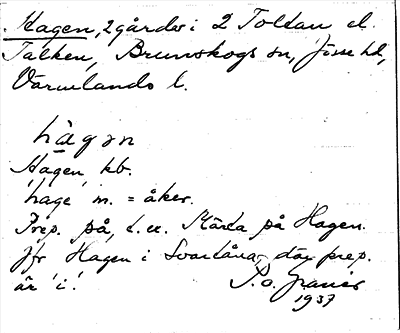 Hagen, 2 gårdar i 2 Toltan el.
Talken, Brunskogs sn, Jösse hd,
Värmlands l.
hàgən
Hagen kb.
'hage' m. = åker.
Prep. på, t. ex. Märta på Hagen.
Jfr Hagen i Svartåna, där prep.
är 'i'.
1937